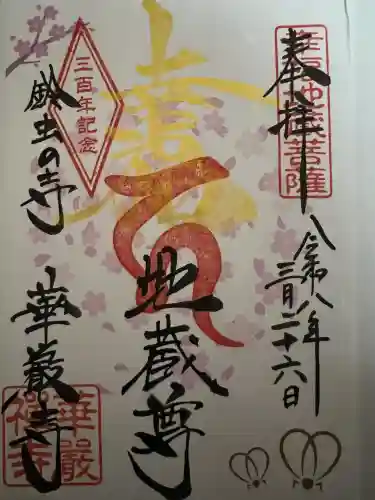 奉拝
幸福地蔵菩薩
令和八年
三月二十六日
寿
地蔵尊
三百年記念
鈴虫の寺
華厳寺
華厳
禅寺